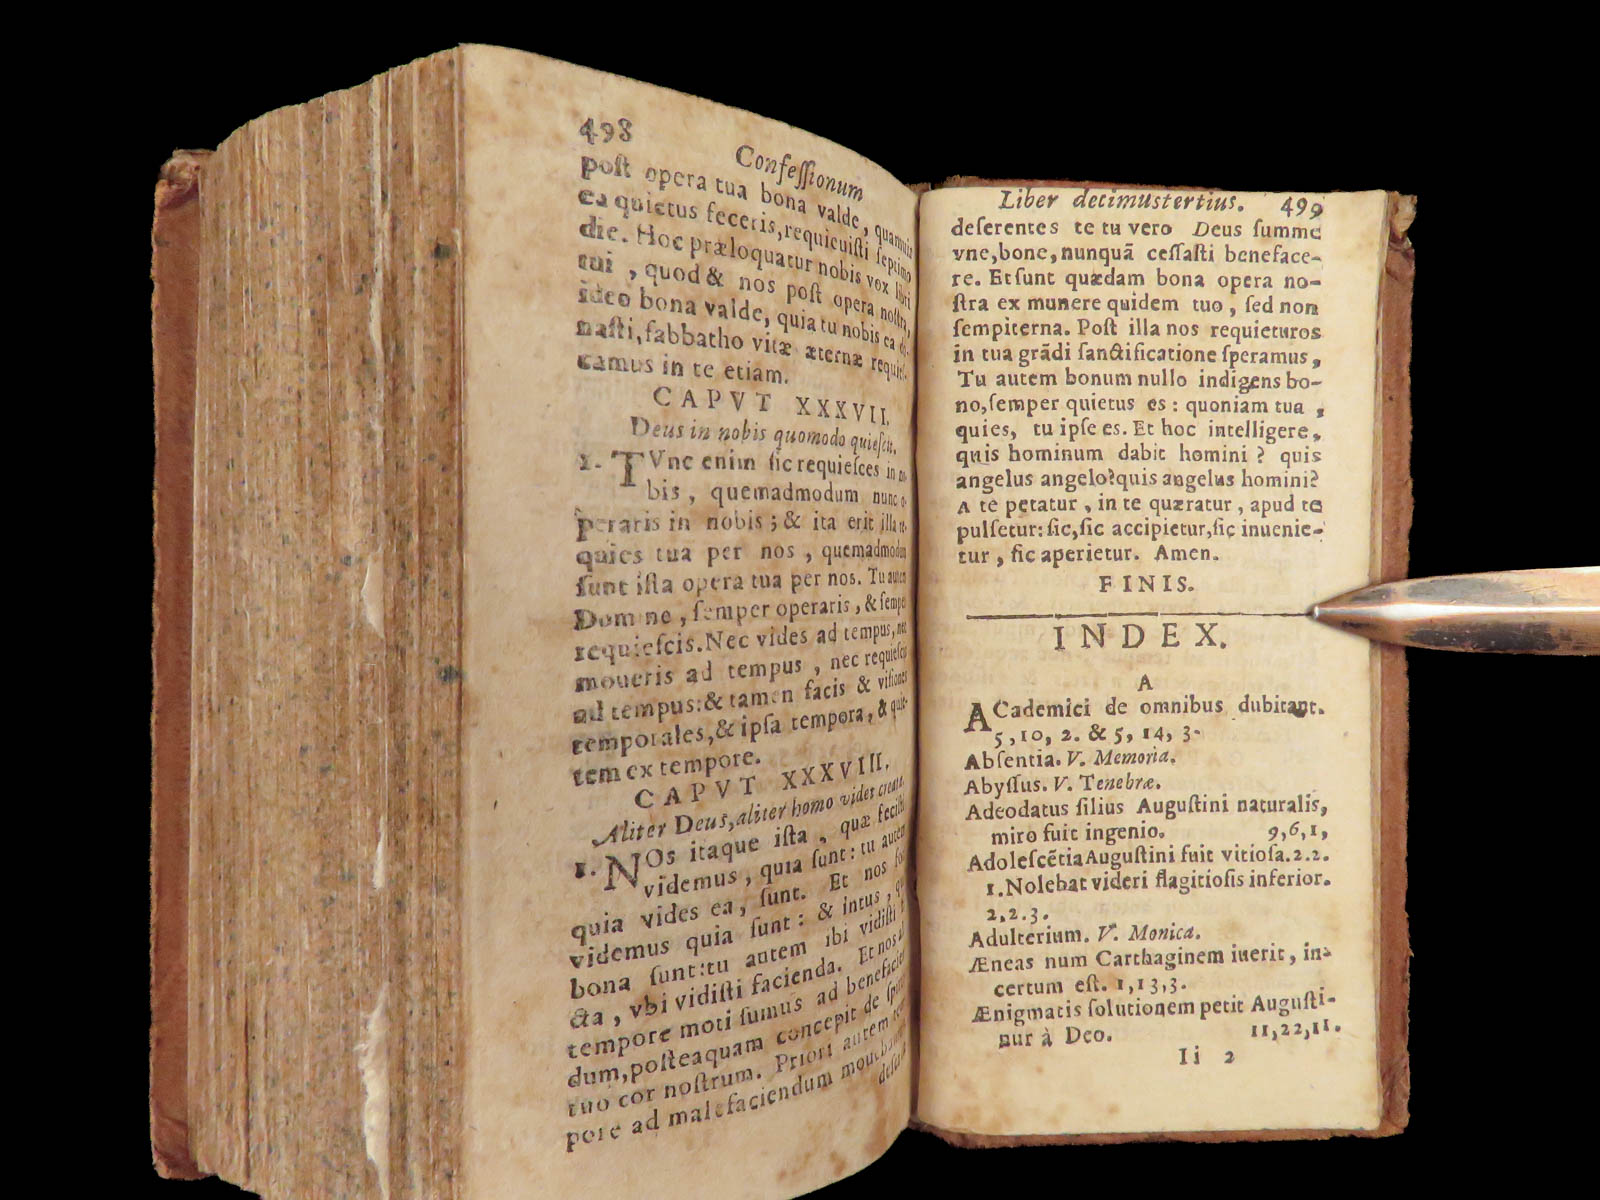 498
Confessionum
poſt opera tua bona valde, quamuis
ea quietus feceris, requieuiſti ſeptimo
die. Hoc præloquatur nobis vox libri
tui, quod & nos poſt opera noſtra,
ideo bona valde, quia tu nobis ea do-
naſti, ſabbatho vitæ æternæ requieſ-
camus in te etiam.
CAPVT XXXVII.
Deus in nobis quomodo quieſcit.
1. TVnc enim ſic requieſces in no-
bis, quemadmodum nunc o-
peraris in nobis; & ita erit illa re-
quies tua per nos, quemadmodum
ſunt iſta opera tua per nos. Tu autem
Domine, ſemper operaris, & ſemper
requieſcis. Nec vides ad tempus, nec
moueris ad tempus, nec requieſcis
ad tempus: & tamen facis & viſiones
temporales, & ipſa tempora, & quie-
tem ex tempore.
CAPVT XXXVIII.
Aliter Deus, aliter homo videt creata.
1. NOs itaque iſta, quæ feciſti
videmus, quia ſunt: tu autem
quia vides ea, ſunt. Et nos
videmus quia ſunt: & intus,
bona ſunt: tu autem ibi vidiſti
&a, vbi vidiſti facienda. Et nos
tempore moti ſumus ad benefacien
dum, poſteaquam concepit de
tuo cor noſtrum. Priori autem
pore ad malefaciendum
Liber decimustertius. 499
deſerentes te tu vero Deus ſumme
vne, bone, nunquā ceſſaſti beneface-
re. Et ſunt quædam bona opera no-
ſtra ex munere quidem tuo, ſed non
ſempiterna. Poſt illa nos requieturos
in tua grādi ſanctificatione ſperamus,
Tu autem bonum nullo indigens bo-
no, ſemper quietus es: quoniam tua,
quies, tu ipſe es. Et hoc intelligere,
quis hominum dabit homini? quis
angelus angelo? quis angelus homini?
A te petatur, in te quæratur, apud te
pulſetur: ſic, ſic accipietur, ſic inuenie-
tur, ſic aperietur. Amen.
FINIS.
INDEX.
A
ACademici de omnibus dubitant.
5, 10, 2. & 5, 14, 3.
Abſentia. V. Memoria.
Abyſſus. V. Tenebræ.
Adeodatus filius Auguſtini naturalis,
miro fuit ingenio. 9,6,1,
Adoleſcētia Auguſtini fuit vitioſa. 2.2.
1. Nolebat videri flagitioſis inferior.
2,2.3.
Adulterium. V. Monica.
Æneas num Carthaginem iuerit, in-
certum eſt. 1,13,3.
Ænigmatis ſolutionem petit Auguſti-
nur à Deo. 11,22,11.
Ii 2